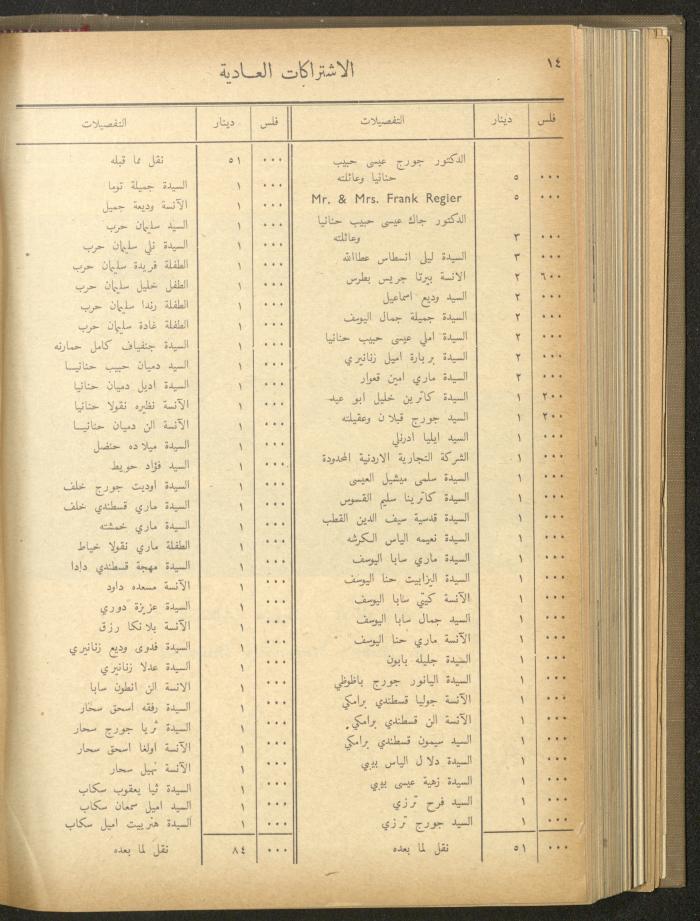 ١٤
الاشتراكات العادية
فلس دينار التفصيلات
الدكتور جورج عيسى حبيب
٠٠٠ ٥ حنانيا وعائلته
٠٠٠ ٥ Mr. & Mrs. Frank Regier
الدكتور جاك عيسى حبيب حنانيا
٠٠٠ ٣ وعائلته
٠٠٠ ٣ السيدة ليلى انسطاس عطاالله
٦٠٠ ٢ الانسة بيرتا جريس بطرس
٠٠٠ ٢ السيد وديع اسماعيل
٠٠٠ ٢ السيدة جميلة جمال اليوسف
٠٠٠ ٢ السيدة املي عيسى حبيب حنانيا
٠٠٠ ٢ السيدة بربارة اميل زنانيري
٠٠٠ ٢ السيدة ماري امين قعوار
٢٠٠ ١ السيدة كاترين خليل ابو عيد
٢٠٠ ١ السيد جورج قبلان وعقيلته
٠٠٠ ١ السيد ايليا ادرنلي
٠٠٠ ١ الشركة التجارية الاردنية المحدودة
٠٠٠ ١ السيدة سلمى ميشيل العيسى
٠٠٠ ١ السيدة كاترينا سليم القسوس
٠٠٠ ١ السيدة قدسية سيف الدين القطب
٠٠٠ ١ السيدة نعيمه الياس الكرشه
٠٠٠ ١ السيدة ماري سابا اليوسف
٠٠٠ ١ السيدة اليزابيت حنا اليوسف
٠٠٠ ١ الآنسة كيتي سابا اليوسف
٠٠٠ ١ السيد جمال سابا اليوسف
٠٠٠ ١ الآنسة ماري حنا اليوسف
٠٠٠ ١ السيدة جليله بابون
٠٠٠ ١ السيدة اليانور جورج باظوظي
٠٠٠ ١ الآنسة جوليا قسطندي برامكي
٠٠٠ ١ الآنسة الن قسطندي برامكي
٠٠٠ ١ السيد سيمون قسطندي برامكي
٠٠٠ ١ السيدة دلال الياس بيبي
٠٠٠ ١ السيدة زهية عيسى بيبي
٠٠٠ ١ السيد فرح ترزي
٠٠٠ ١ السيد جورج ترزي
٠٠٠ ٥١ نقل لما بعده
فلس دينار التفصيلات
٠٠٠ ٥١ نقل مما قبله
٠٠٠ ١ السيدة جميلة توما
٠٠٠ ١ الآنسة وديعة جميل
٠٠٠ ١ السيد سليمان حرب
٠٠٠ ١ السيدة نلي سليمان حرب
٠٠٠ ١ الطفلة فريدة سليمان حرب
٠٠٠ ١ الطفل خليل سليمان حرب
٠٠٠ ١ الطفلة رندا سليمان حرب
٠٠٠ ١ الطفلة غادة سليمان حرب
٠٠٠ ١ السيدة جنفياف كامل حمارنه
٠٠٠ ١ السيد دميان حبيب حنانيا
٠٠٠ ١ السيدة اديل دميان حنانيا
٠٠٠ ١ الآنسة نظيره نقولا حنانيا
٠٠٠ ١ الآنسة الن دميان حنانيا
٠٠٠ ١ السيدة ميلاده حنضل
٠٠٠ ١ السيد فؤاد حويط
٠٠٠ ١ السيدة اوديت جورج خلف
٠٠٠ ١ السيدة ماري قسطندي خلف
٠٠٠ ١ السيدة ماري خمشته
٠٠٠ ١ الطفلة ماري نقولا خياط
٠٠٠ ١ السيدة مهجة قسطندي دادا
٠٠٠ ١ الآنسة مسعده داود
٠٠٠ ١ السيدة عزيزة دوري
٠٠٠ ١ الآنسة بلانكا رزق
٠٠٠ ١ السيدة فدوى وديع زنانيري
٠٠٠ ١ السيدة عدلا زنانيري
٠٠٠ ١ الانسة الن انطون سابا
٠٠٠ ١ السيدة رفقه اسحق سحار
٠٠٠ ١ السيدة ثريا جورج سحار
٠٠٠ ١ الآنسة اولغا اسحق سحار
٠٠٠ ١ الآنسة نهيل سحار
٠٠٠ ١ السيدة ثيا يعقوب سكاب
٠٠٠ ١ السيد اميل سمعان سكاب
٠٠٠ ١ السيدة هنرييت اميل سكاب
٠٠٠ ٨٤ نقل لما بعده